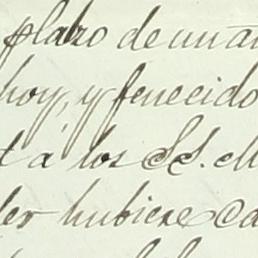 plazo de un añ
hoy, y fenecido
t á los SS. M
der hubiere Ca